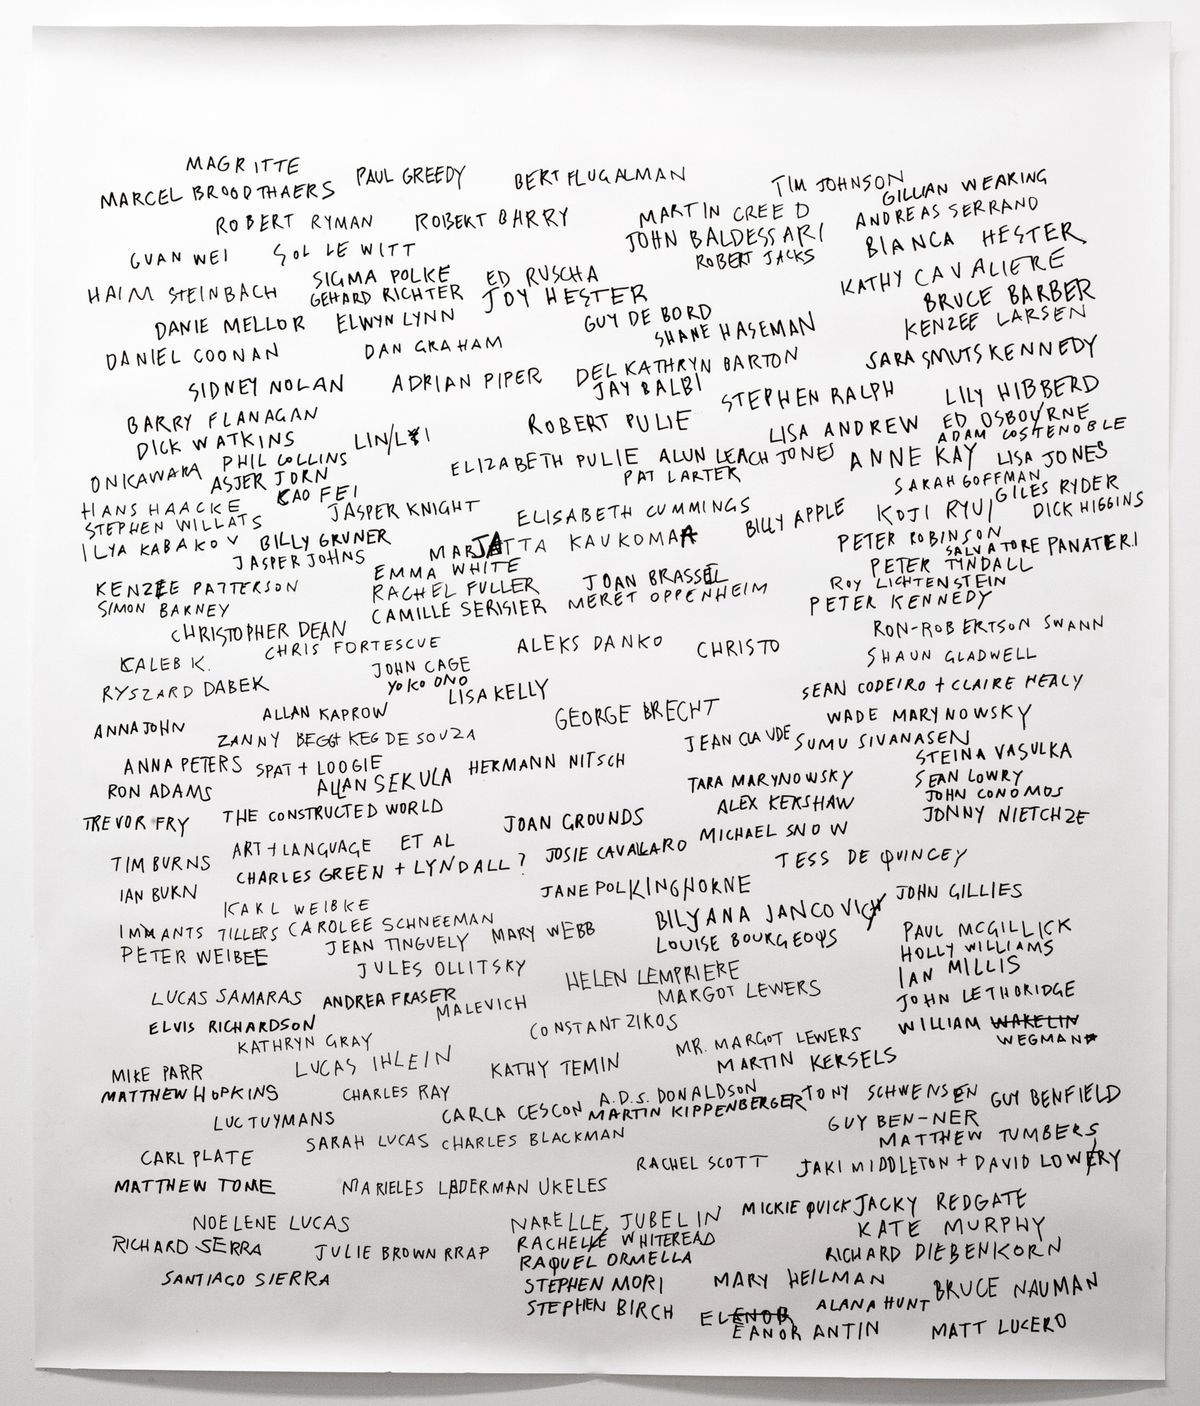 MAGRITTE
PAUL GREEDY
BERT FLUGALMAN
TIM JOHNSON
MARCEL BROODTHAERS
GILLIAN WEARING
ROBERT RYMAN
ROBERT BARRY
MARTIN CREED
ANDREAS SERRANO
GUAN WEI
SOL LE WITT
JOHN BALDESSARI
BIANCA HESTER
ROBERT JACKS
HAIM STEINBACH
SIGMA POLKE
ED RUSCHA
KATHY CAVALIERE
GEHARD RICHTER
JOY HESTER
BRUCE BARBER
DANIE MELLOR
ELWYN LYNN
GUY DE BORD
KENZEE LARSEN
SHANE HASEMAN
DANIEL COONAN
DAN GRAHAM
SARA SMUTS KENNEDY
SIDNEY NOLAN
ADRIAN PIPER
DEL KATHRYN BARTON
JAY BALBI
STEPHEN RALPH
LILY HIBBERD
BARRY FLANAGAN
ROBERT PULIE
LISA ANDREW
ED OSBOURNE
DICK WATKINS
LIN/LI
ADAM COSTENOBLE
ONIKAWARA
PHIL COLLINS
ELIZABETH PULIE
ALUN LEACH JONES
ANNE KAY
LISA JONES
ASJER JORN
PAT LARTER
SARAH GOFFMAN
HANS HAACKE
CAO FEI
GILES RYDER
STEPHEN WILLATS
JASPER KNIGHT
ELISABETH CUMMINGS
BILLY APPLE
KOJI RYUI
DICK HIGGINS
ILYA KABAKOV
BILLY GRUNER
MARJATTA KAUKOMAA
PETER ROBINSON
JASPER JOHNS
SALVATORE PANATERI
EMMA WHITE
PETER TYNDALL
KENZEE PATTERSON
RACHEL FULLER
JOAN BRASSEL
ROY LICHTENSTEIN
SIMON BARNEY
CAMILLE SERISIER
MERET OPPENHEIM
PETER KENNEDY
CHRISTOPHER DEAN
RON-ROBERTSON SWANN
CHRIS FORTESCUE
ALEKS DANKO
CHRISTO
CALEB K.
JOHN CAGE
SHAUN GLADWELL
RYSZARD DABEK
YOKO ONO
LISA KELLY
SEAN CODEIRO + CLAIRE HEALY
ALLAN KAPROW
GEORGE BRECHT
WADE MARYNOWSKY
ANNA JOHN
ZANNY BEGG KEG DE SOUZA
JEAN CLAUDE
SUMU SIVANASEN
ANNA PETERS
SPAT + LOOGIE
HERMANN NITSCH
STEINA VASULKA
RON ADAMS
ALLAN SEKULA
TARA MARYNOWSKY
SEAN LOWRY
JOHN CONOMOS
TREVOR FRY
THE CONSTRUCTED WORLD
JOAN GROUNDS
ALEX KERSHAW
JONNY NIETCHZE
TIM BURNS
ART + LANGUAGE
ET AL
JOSIE CAVALLARO
MICHAEL SNOW
CHARLES GREEN + LYNDALL ?
TESS DE QUINCEY
IAN BURN
JANE POLKINGHORNE
JOHN GILLIES
KARL WEIBKE
IMANTS TILLERS
CAROLEE SCHNEEMAN
BILYANA JANCOVICH
PETER WEIBEE
JEAN TINGUELY
MARY WEBB
LOUISE BOURGEOUS
PAUL MCGILLICK
JULES OLLITSKY
HELEN LEMPRIERE
HOLLY WILLIAMS
LUCAS SAMARAS
ANDREA FRASER
MARGOT LEWERS
IAN MILLIS
MALEVICH
JOHN LETHORIDGE
ELVIS RICHARDSON
CONSTANT ZIKOS
WILLIAM WAKELIN
KATHRYN GRAY
MR. MARGOT LEWERS
WEGMAN
MIKE PARR
LUCAS IHLEIN
KATHY TEMIN
MARTIN KERSELS
MATTHEW HOPKINS
CHARLES RAY
A.D.S. DONALDSON
TONY SCHWENSEN
GUY BENFIELD
LUC TUYMANS
CARLA CESCON
MARTIN KIPPENBERGER
GUY BEN-NER
SARAH LUCAS
CHARLES BLACKMAN
MATTHEW TUMBERS
CARL PLATE
RACHEL SCOTT
JAKI MIDDLETON + DAVID LOWERY
MATTHEW TOME
MARIELES LADERMAN UKELES
MICKIE QUICK
JACKY REDGATE
NOELENE LUCAS
NARELLE JUBELIN
KATE MURPHY
RICHARD SERRA
JULIE BROWN RRAP
RACHELLE WHITEREAD
RICHARD DIEBENKORN
RAQUEL ORMELLA
SANTIAGO SIERRA
STEPHEN MORI
MARY HEILMAN
BRUCE NAUMAN
STEPHEN BIRCH
ELENOR
ALANA HUNT
EANOR ANTIN
MATT LUCERO